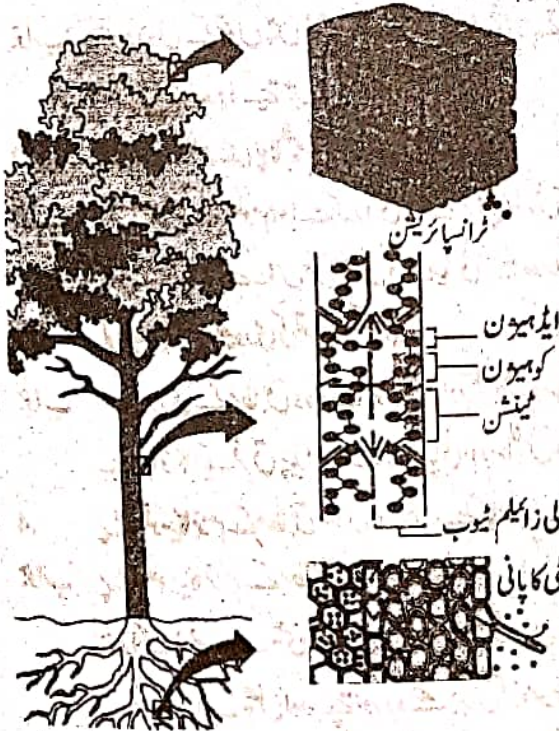 ٹرانسپائریشن
ایڈہیژن
کوہیژن
ٹینشن
زائیلم ٹیوب
کا پانی